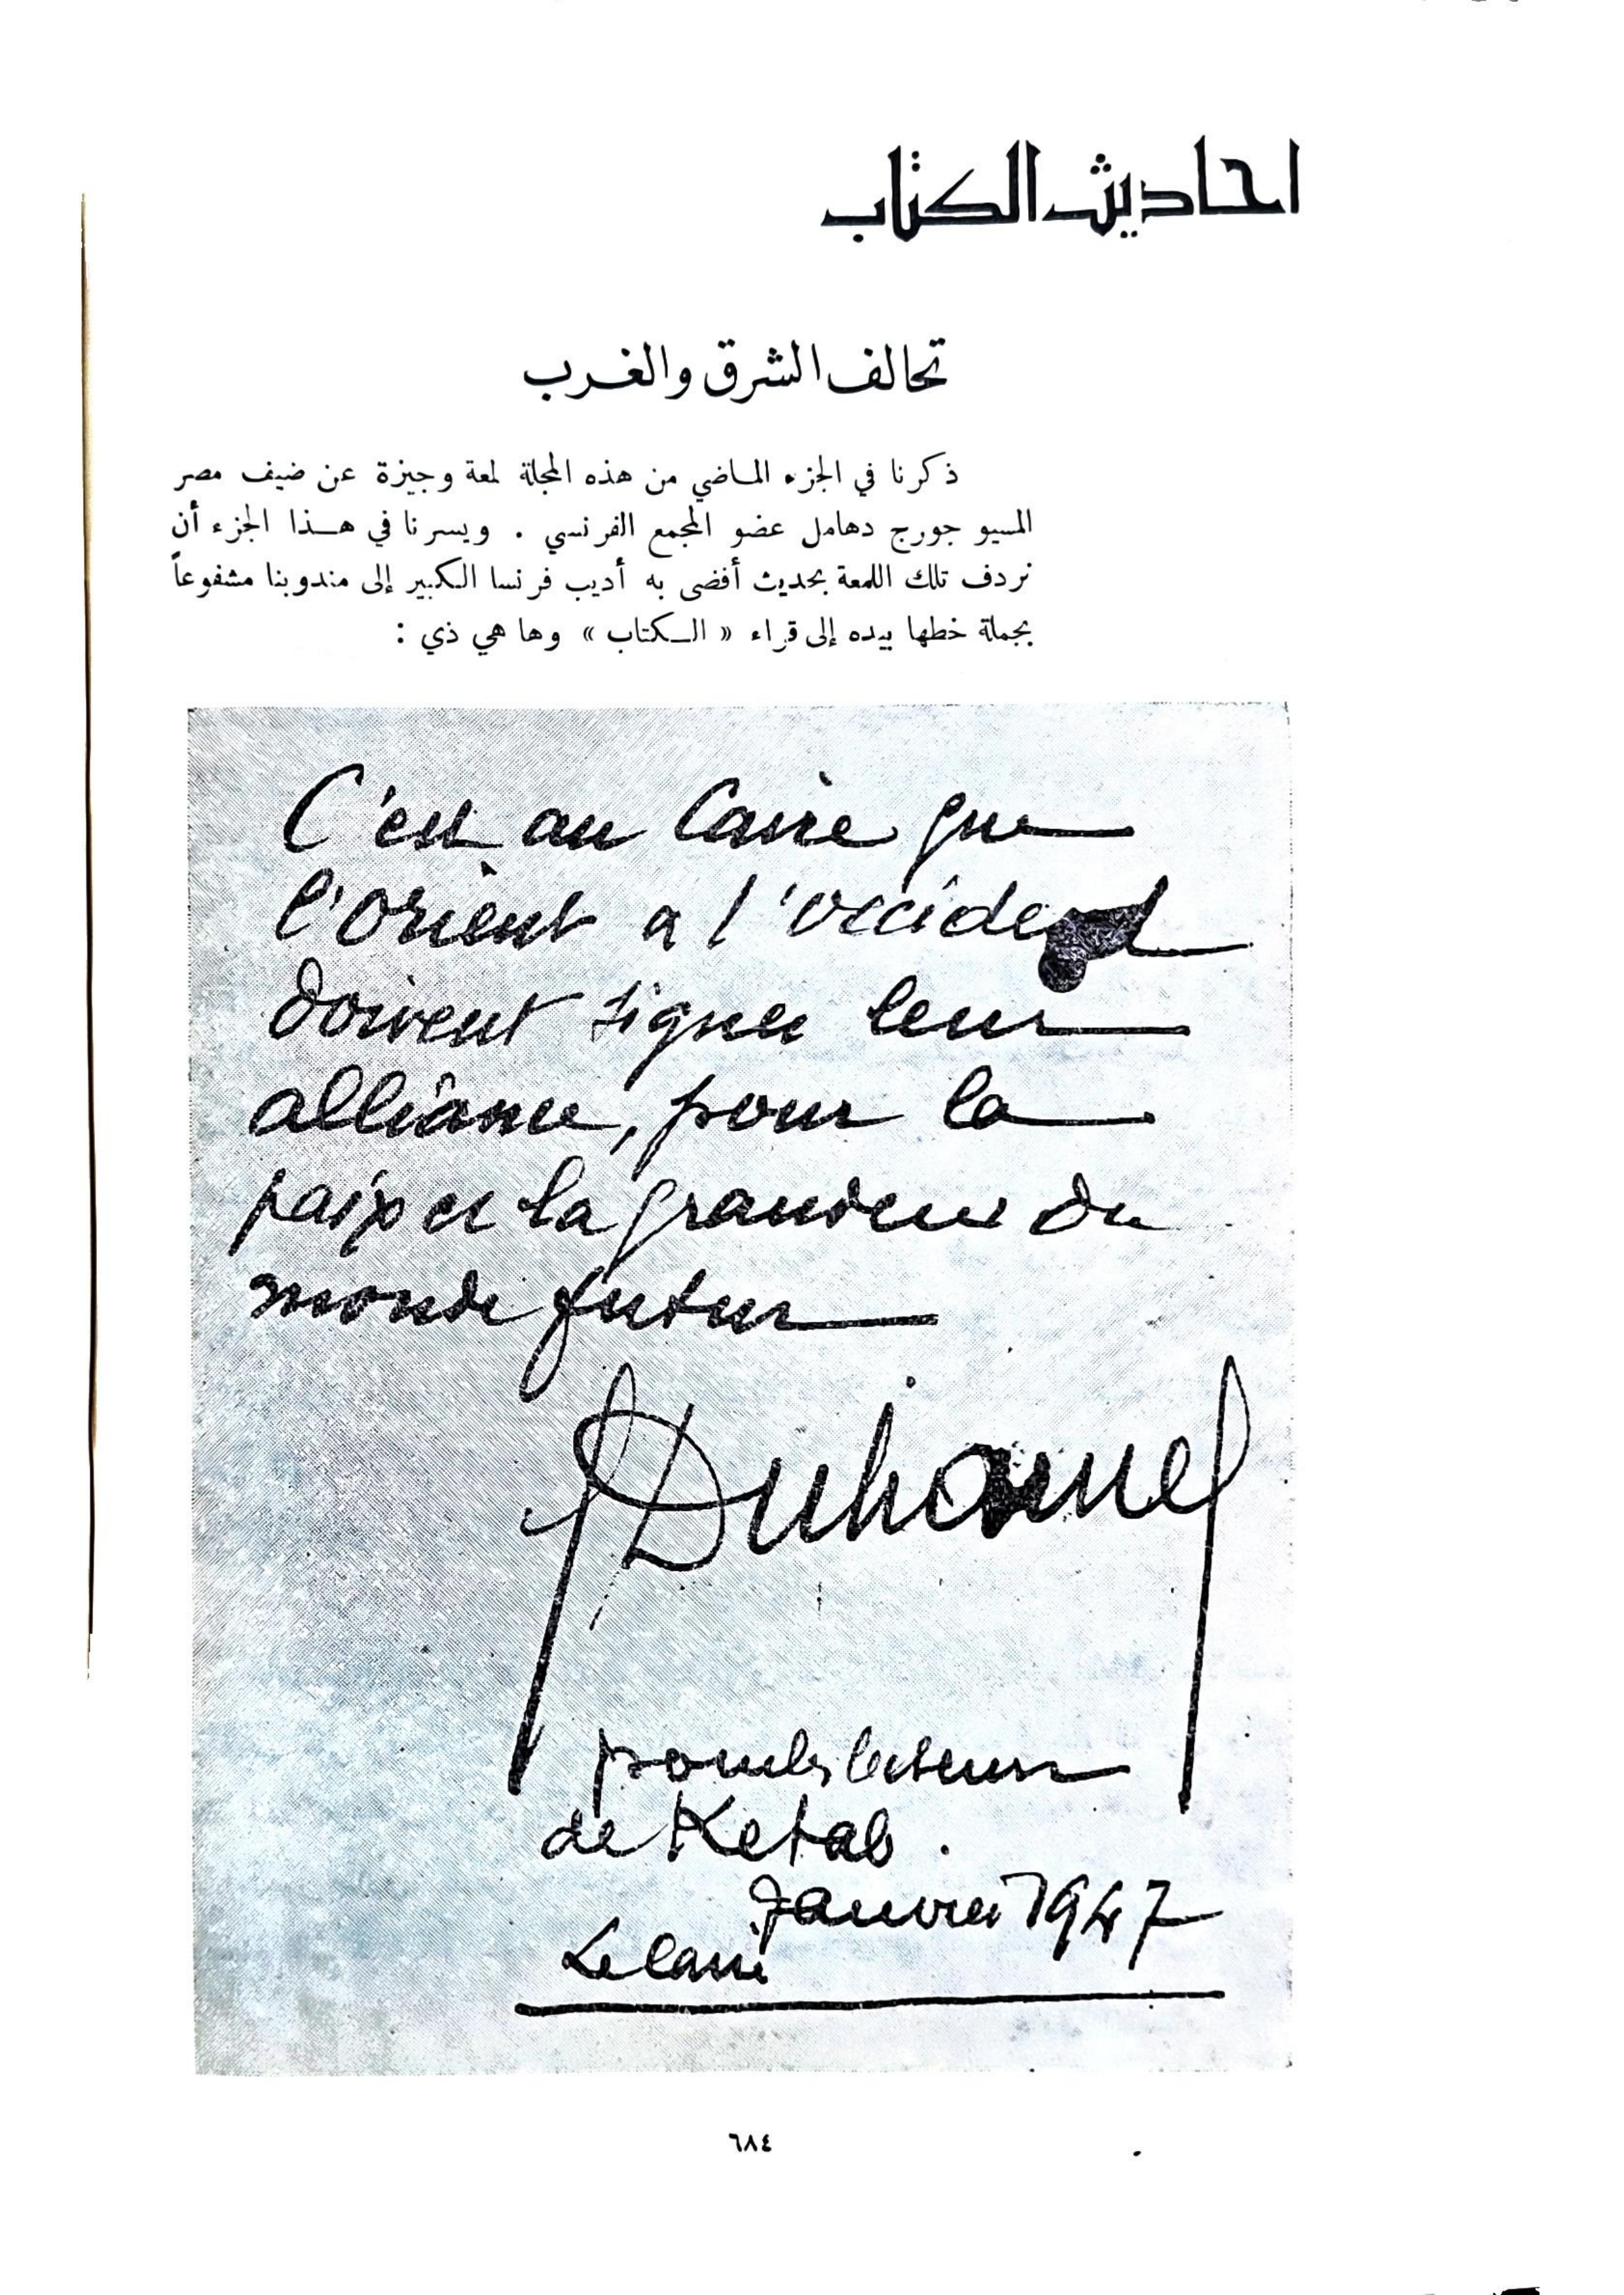 احاديث الكتاب
تحالف الشرق والغرب
ذكرنا في الجزء الماضي من هذه المجلة لمعة وجيزة عن ضيف مصر
المسيو جورج دهامل عضو المجمع الفرنسي . ويسرنا في هذا الجزء أن
نردف تلك اللمعة بحديث أفضى به أديب فرنسا الكبير إلى مندوبنا مشفوعاً
بجملة خطها بيده إلى قراء « الكتاب » وها هي ذي :
C'est au Caire que
l'Orient a l'occident
doivent signer leur
alliance, pour la
paix et la grandeur du
monde futur
GDuhamel
pour les lecteurs
de Ketab.
Janvier 1947
Le Caire
٦٨٤